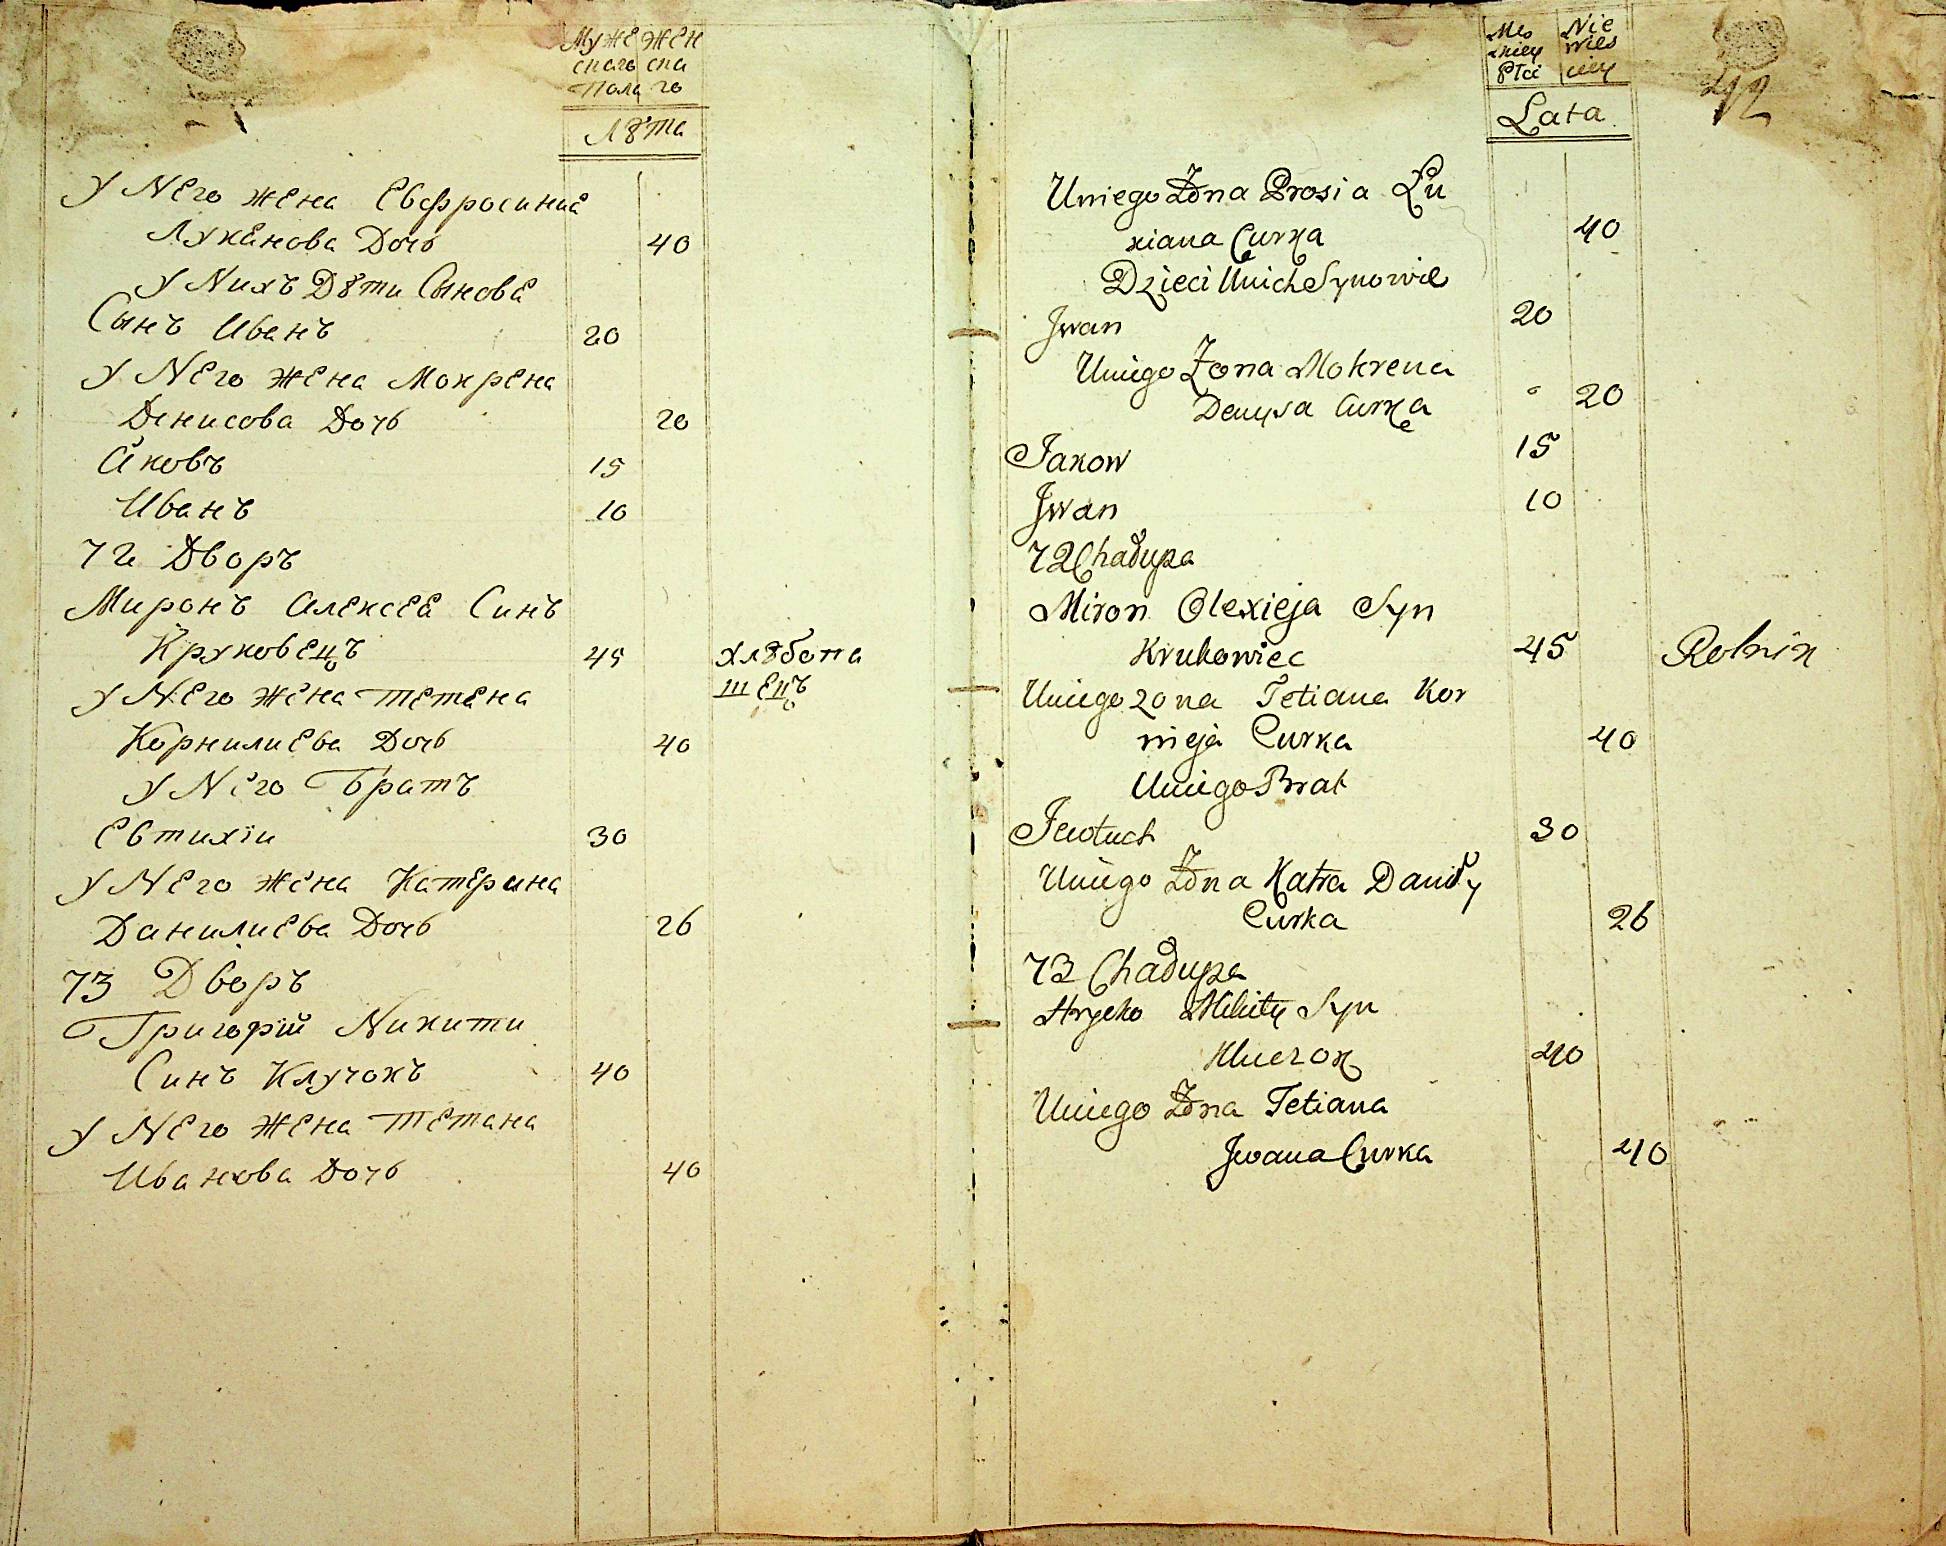 Муже Жен
скаго ска
Пола го
Лѣта
У Него жена Евфросиниа
Луканова Дочь 40
У Нихъ Дѣти Сыновѣ
Сынъ Иванъ 20
У Него жена Мокрена
Денисова Дочь 20
Яковъ 15
Иванъ 10
72 Дворъ
Миронъ Алексея Синъ
Круковецъ 45 хлѣбопа
шецъ
У Него жена Тетяна
Корнилиева Дочь 40
У Него Братъ
Евтихіи 30
У Него жена Катерина
Данилиева Дочь 26
73 Дворъ
Григорій Никити
Синъ Клучокъ 40
У Него жена Тетана
Иванова Дочь 40
Męs Nie
kiey wies
Płci ciey
Lata
Uniego Żona Prosia Łu
kiana Curka 40
Dzieci Unich Synowie
Jwan 20
Uniego Żona Mokrena
Denysa Curka 20
Jakow 15
Jwan 10
72 Chałupa
Miron Olexieja Syn
Krukowiec 45 Rolnik
Uniego zona Tetiana Kor
nieja Curka 40
Uniego Brat
Jewtuch 30
Uniego Żona Katra Daniły
Curka 26
73 Chałupa
Hryćko Mikity Syn
Kluczok 40
Uniego Żona Tetiana
Jwana Curka 40